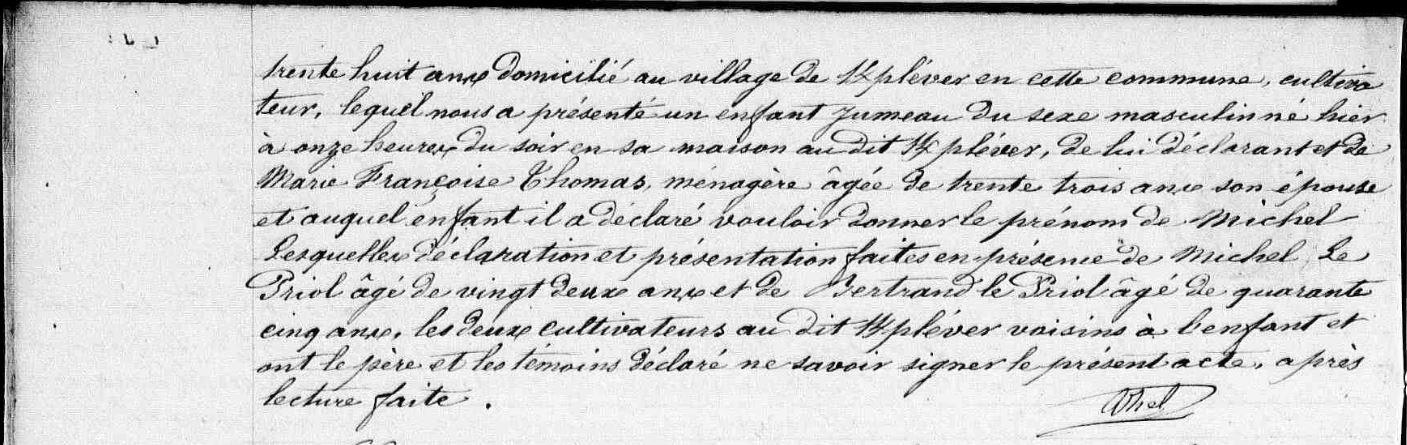 trente huit ans domicilié au village de Kpléver en cette commune, cultiva
teur, lequel nous a présenté un enfant Jumeau du sexe masculin né hier
à onze heures du soir en sa maison au dit Kpléver, de lui déclarant et de
Marie Françoise Thomas, ménagère âgée de trente trois ans son épouse
et auquel enfant il a déclaré vouloir donner le prénom de Michel
Lesquelles déclaration et présentation faites en présence de Michel Le
Priol âgé de vingt deux ans et de Bertrand le Priol âgé de quarante
cinq ans, les deux cultivateurs au dit Kpléver voisins à l'enfant et
ont le père et les témoins déclaré ne savoir signer le présent acte, après
lecture faite.